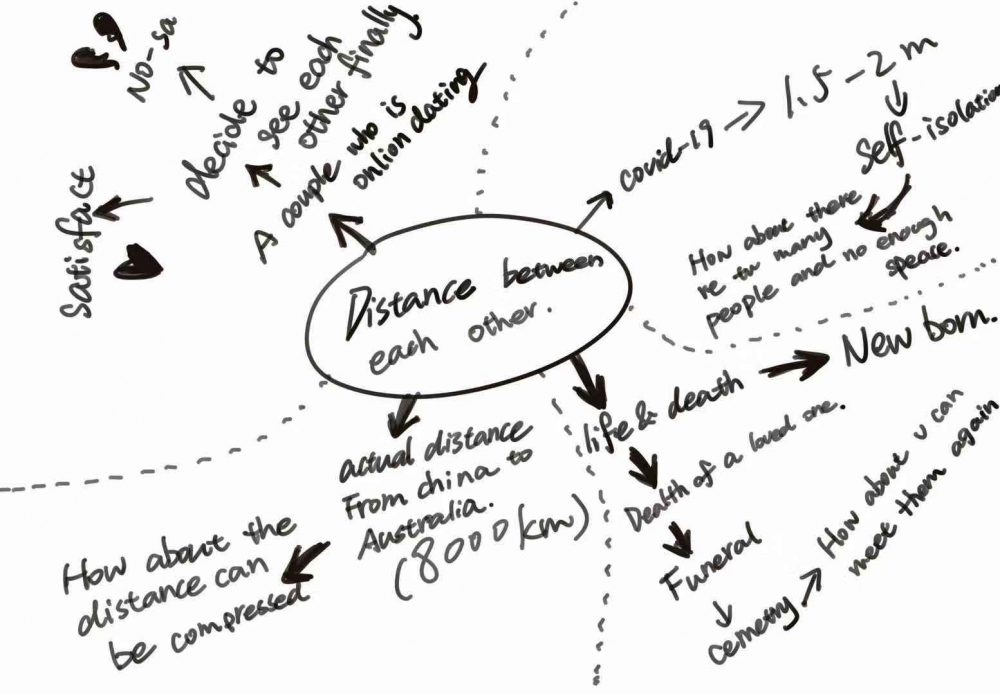 Distance between
each other.
A couple who is
onlion dating
decide to
see each
other finally.
No-sa
Satisfact
covid-19
1.5-2m
Self-isolation
How about there
re tw many
people and no enough
speace.
life & death
New born.
Death of a loved one.
Funeral
cemetry
How about u can
meet them again
actual distance
From china to
Australia.
(8000km)
How about the
distance can
be compressed